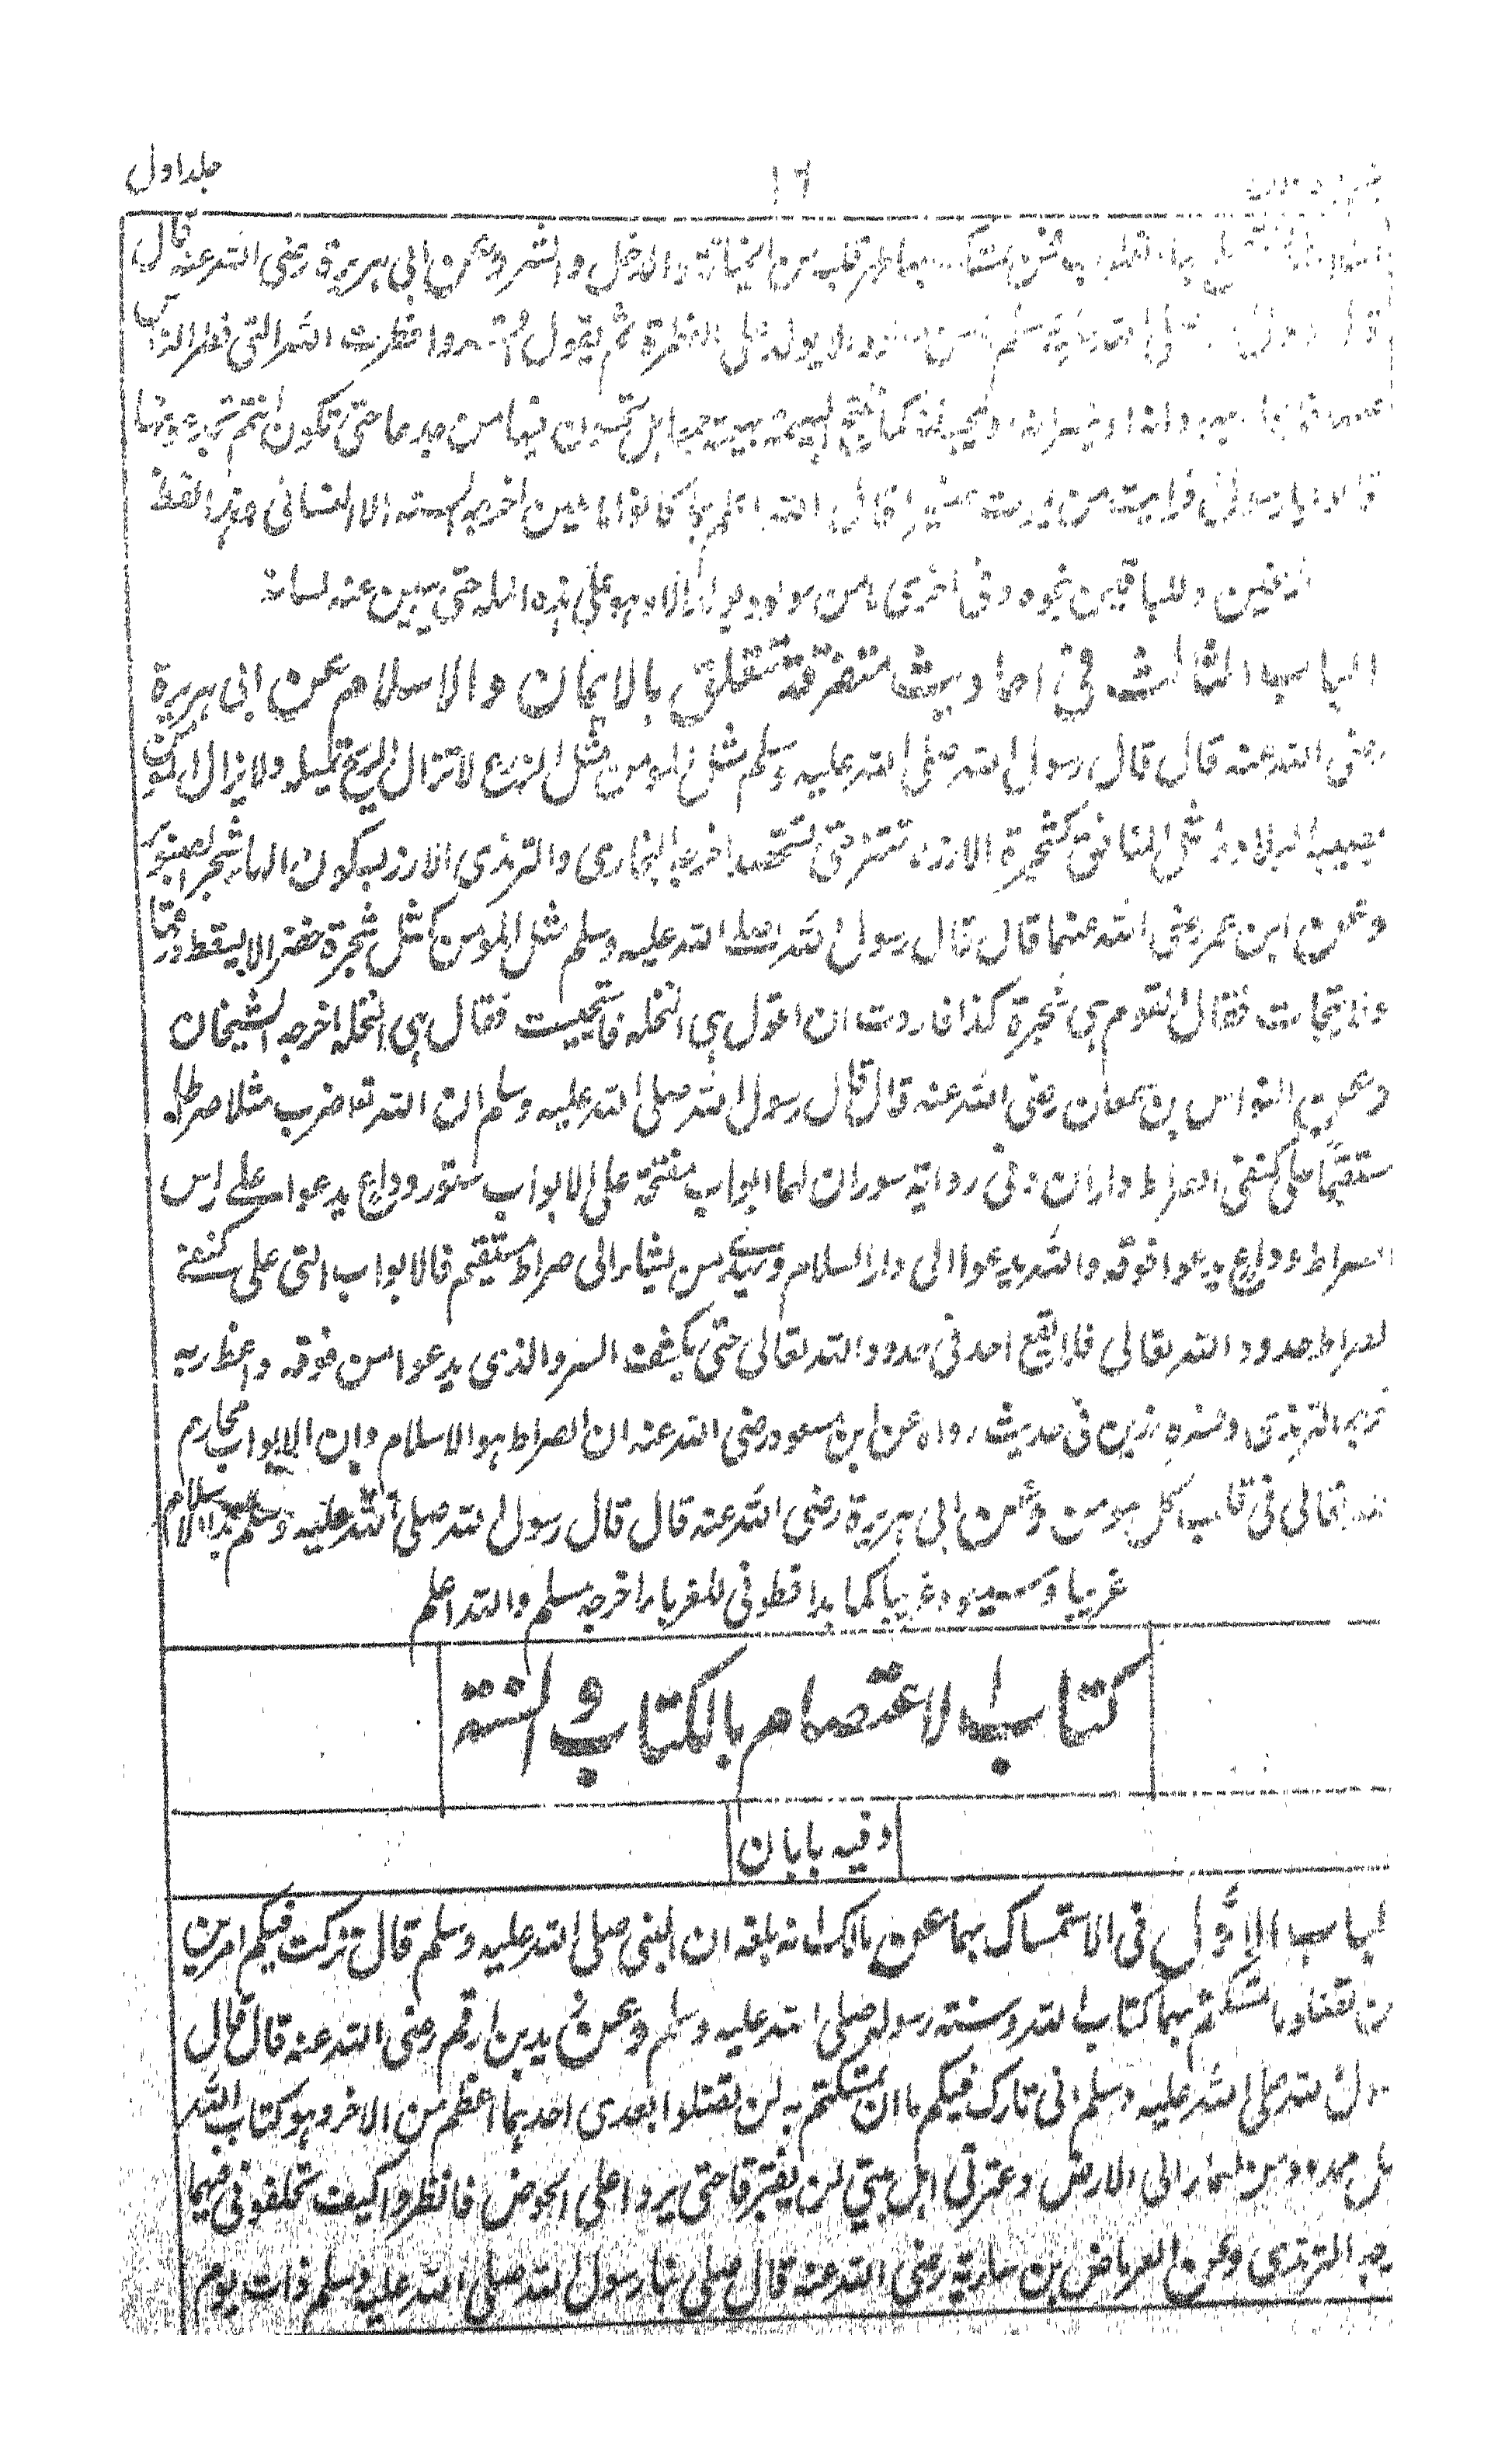 جلد اول
١٦
قلبه من الخيانة والدغل والشر وعن ابى هريرة رضى الله عنه قال
يولد على الفطرة ثم يقول اقرؤا فطرت الله التى فطر الناس
كما تنتج البهيمة بهيمة جمعاء هل تحسون فيها من جدعا حتى تكون انتم تجدعونها
قالوا يا رسول افرايت من يموت صغيرا قال الله اعلم بما كانوا عاملين اخرجه الستة الا النسائى وهذا لفظ
وللباقين نحوه وفى اخرى ما من مولود يولد الا وهو على هذه الملة حتى يبين عنه لسانه
الباب الثالث فى احاديث متفرقة تتعلق بالايمان والاسلام عن ابى هريرة
رضى الله عنه قال قال رسول الله صلى الله عليه وسلم مثل المومن مثل الزرع لا تزال الريح تميله ولا يزال المومن
يصيبه البلاء ومثل المنافق كشجرة الارزة تهتز حتى تستحصد اخرجه البخارى والترمذى الارز بسكون الراء شجر الصنوبر
وعن ابن عمر رضى الله عنهما قال قال رسول الله صلى الله عليه وسلم مثل المومن كمثل شجرة خضراء لا يسقط ورقها
ولا يتحات فقال القوم هى شجرة كذا فاردت ان اقول هى النخلة فاستحييت فقال هى النخلة اخرجه الشيخان
وعن النواس بن سمعان رضى الله عنه قال قال رسول الله صلى الله عليه وسلم ان الله تعا ضرب مثلا صراطا
مستقيما على كنفى الصراط داران وفى رواية سوران لهما ابواب مفتحة على الابواب ستور وداع يدعوا على راس
الصراط وداع يدعوا فوقه والله يدعوا الى دار السلام ويهدى من يشاء الى صراط مستقيم فالابواب التى على كنفى
الصراط حدود الله تعالى فلا يقع احد فى حدود الله تعالى حتى يكشف الستر والذى يدعوا من فوقه واعظ ربه
الترمذى وفسره رزين فى حديث رواه عن ابن مسعود رضى الله عنه ان الصراط هو الاسلام وان الابواب محارم
تعالى فى قلب كل مومن وعن ابى هريرة رضى الله عنه قال قال رسول الله صلى الله عليه وسلم بدا الاسلام
غريبا وسيعود غريبا كما بدا فطوبى للغرباء اخرجه مسلم والله اعلم
كتاب الاعتصام بالكتاب والسنة
وفيه بابان
لباب الاول فى الاستمساك بهما عن مالك انه بلغه ان النبى صلى الله عليه وسلم قال تركت فيكم امرين
لن تضلوا ما تمسكتم بهما كتاب الله وسنة رسوله صلى الله عليه وسلم وعن زيد بن ارقم رضى الله عنه قال قال
رسول الله صلى الله عليه وسلم انى تارك فيكم ما ان تمسكتم به لن تضلوا بعدى احدهما اعظم من الاخر وهو كتاب الله
حبل ممدود من السماء الى الارض وعترتى اهل بيتي لن يفترقا حتى يردا على الحوض فانظروا كيف تخلفونى فيهما
رجه الترمذى وعن العرباض بن سارية رضى الله عنه قال صلى بنا رسول الله صلى الله عليه وسلم ذات يوم